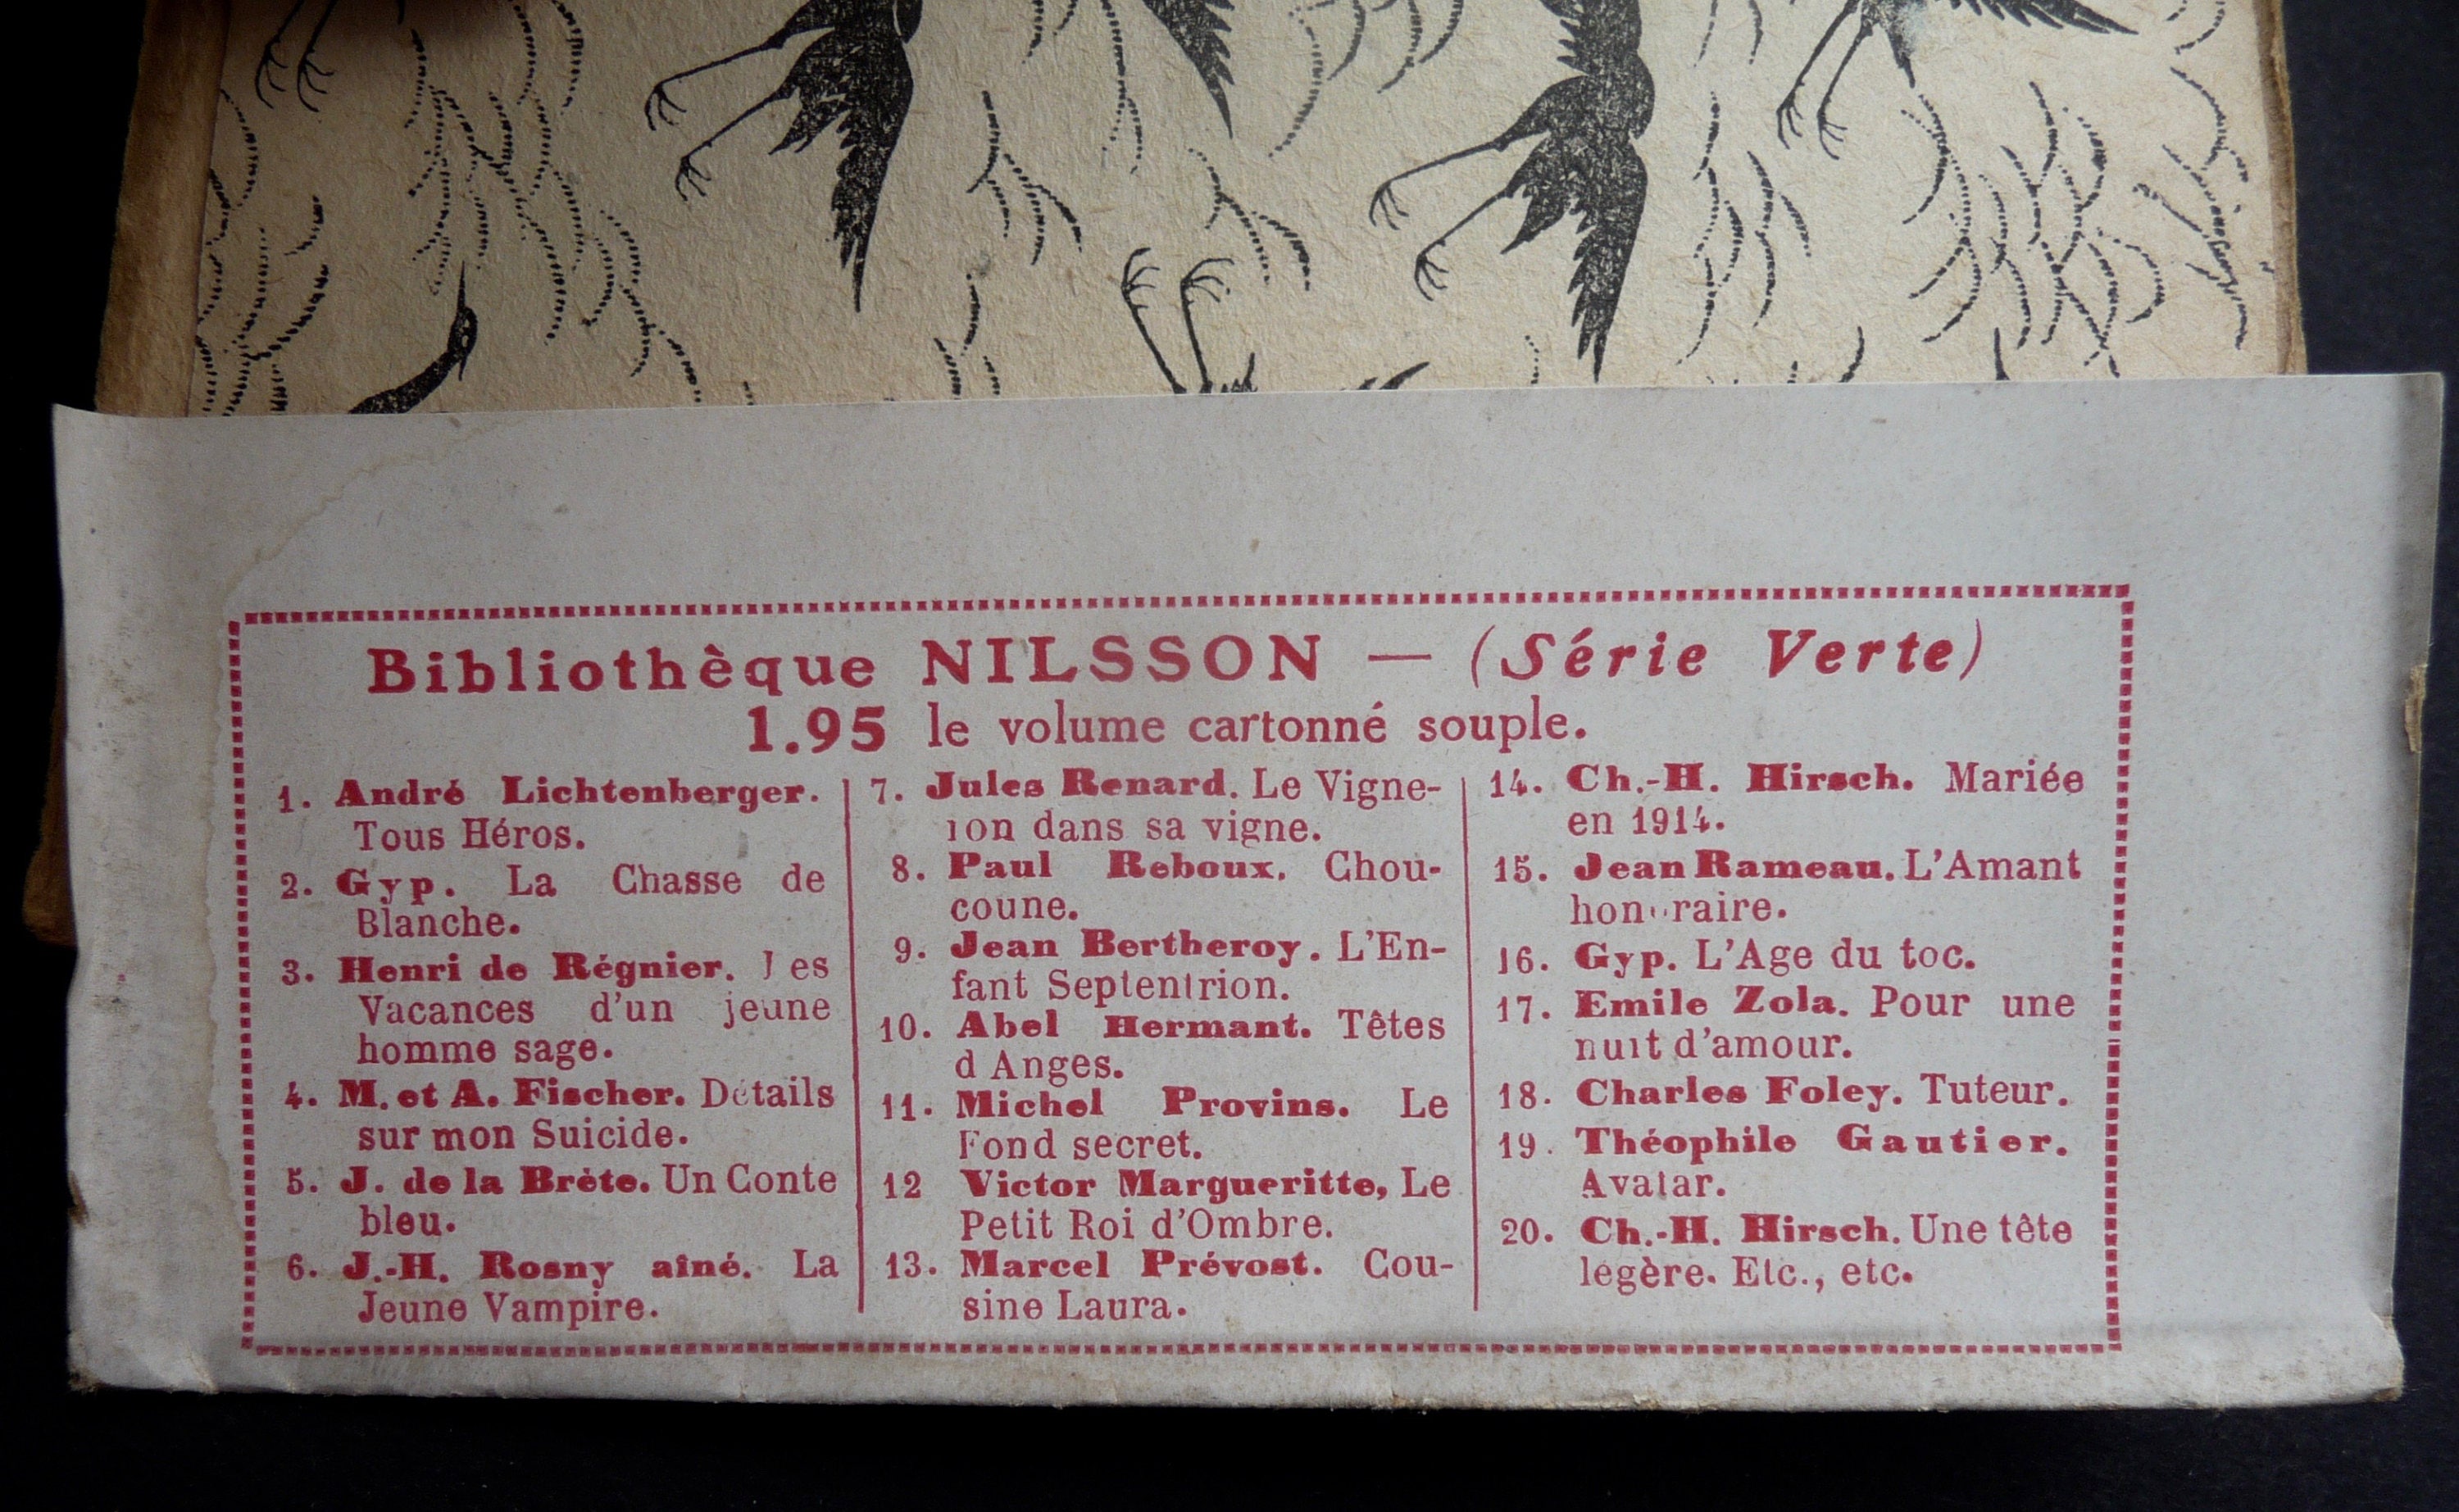 Bibliothèque NILSSON — (Série Verte)
1.95 le volume cartonné souple.
1. André Lichtenberger.
Tous Héros.
2. Gyp. La Chasse de
Blanche.
3. Henri de Régnier. Les
Vacances d'un jeune
homme sage.
4. M. et A. Fischer. Détails
sur mon Suicide.
5. J. de la Brète. Un Conte
bleu.
6. J.-H. Rosny aîné. La
Jeune Vampire.
7. Jules Renard. Le Vigne-
ron dans sa vigne.
8. Paul Reboux. Chou-
coune.
9. Jean Bertheroy. L'En-
fant Septentrion.
10. Abel Hermant. Têtes
d Anges.
11. Michel Provins. Le
Fond secret.
12 Victor Margueritte, Le
Petit Roi d'Ombre.
13. Marcel Prévost. Cou-
sine Laura.
14. Ch.-H. Hirsch. Mariée
en 1914.
15. Jean Rameau. L'Amant
honoraire.
16. Gyp. L'Age du toc.
17. Emile Zola. Pour une
nuit d'amour.
18. Charles Foley. Tuteur.
19. Théophile Gautier.
Avatar.
20. Ch.-H. Hirsch. Une tête
légère. Etc., etc.